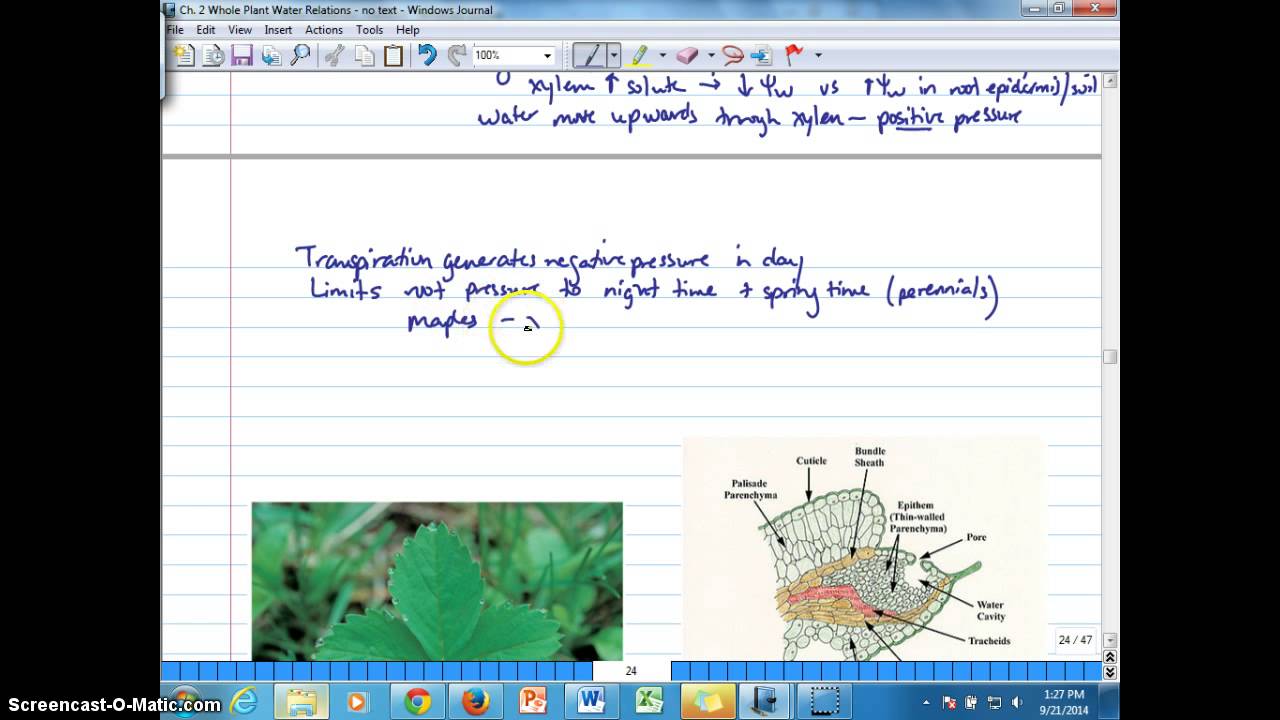 Ch. 2 Whole Plant Water Relations - no text - Windows Journal
File Edit View Insert Actions Tools Help
100%
xylem ↑ solute → ↓ Ψw vs ↑ Ψw in root epidermis/soil
water move upwards through xylem – positive pressure
Transpiration generates negative pressure in day
Limits root pressure to night time + spring time (perennials)
maples –
Bundle
Sheath
Cuticle
Palisade
Parenchyma
Epithem
(Thin-walled
Parenchyma)
Pore
Water
Cavity
Tracheids
24 / 47
24
Screencast-O-Matic.com
1:27 PM
9/21/2014